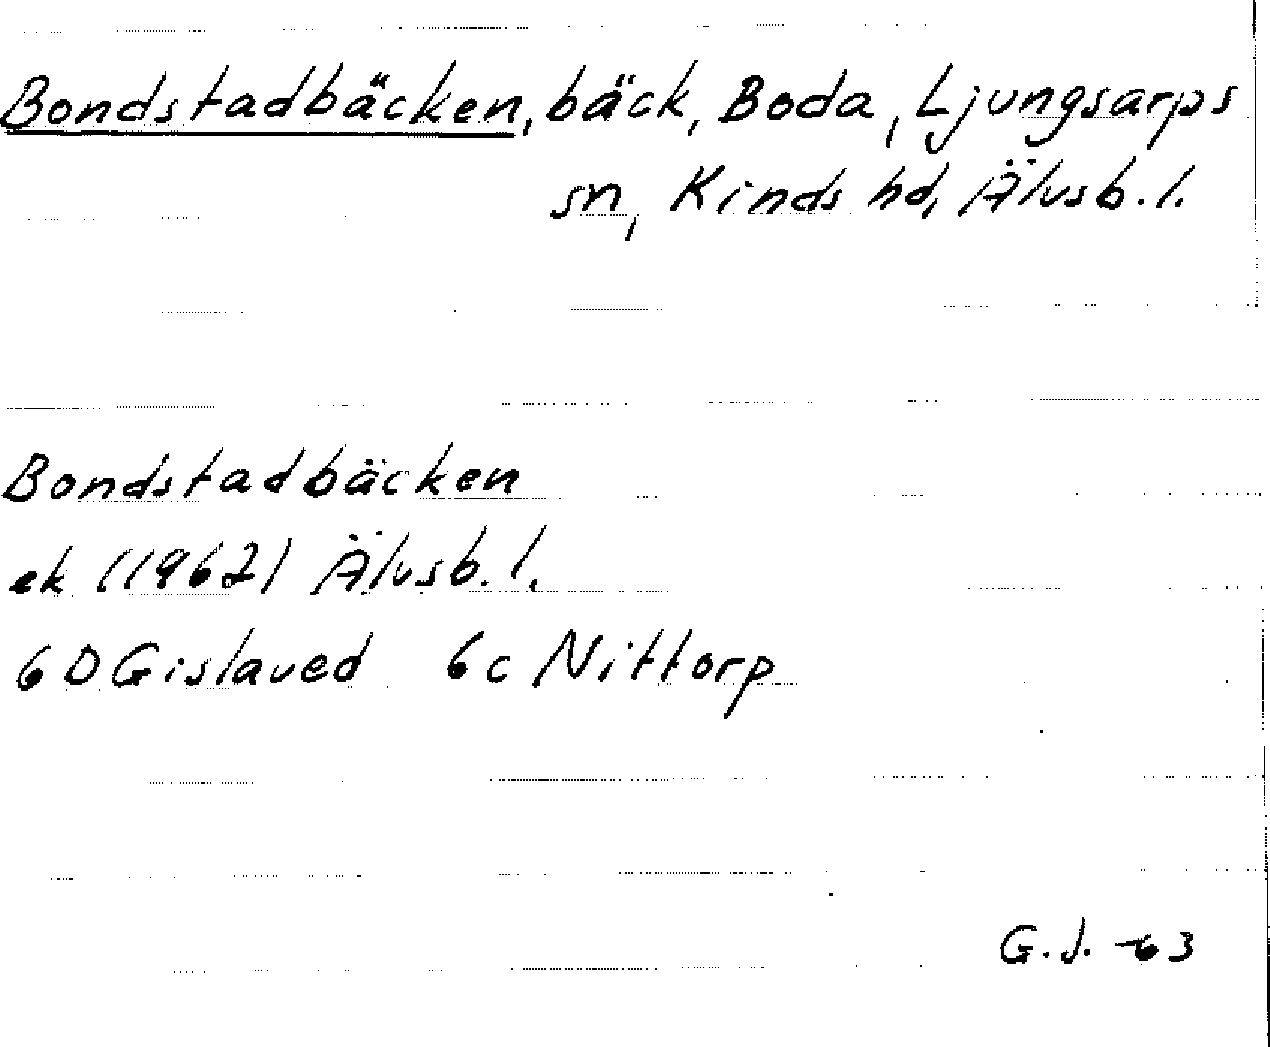 Bondstadbäcken, bäck, Boda, Ljungsarps
sn, Kinds hd, Älvsb. l.
Bondstadbäcken
ek (1962) Älvsb. l.
6 D Gislaved 6 c Nittorp
G. J. -63